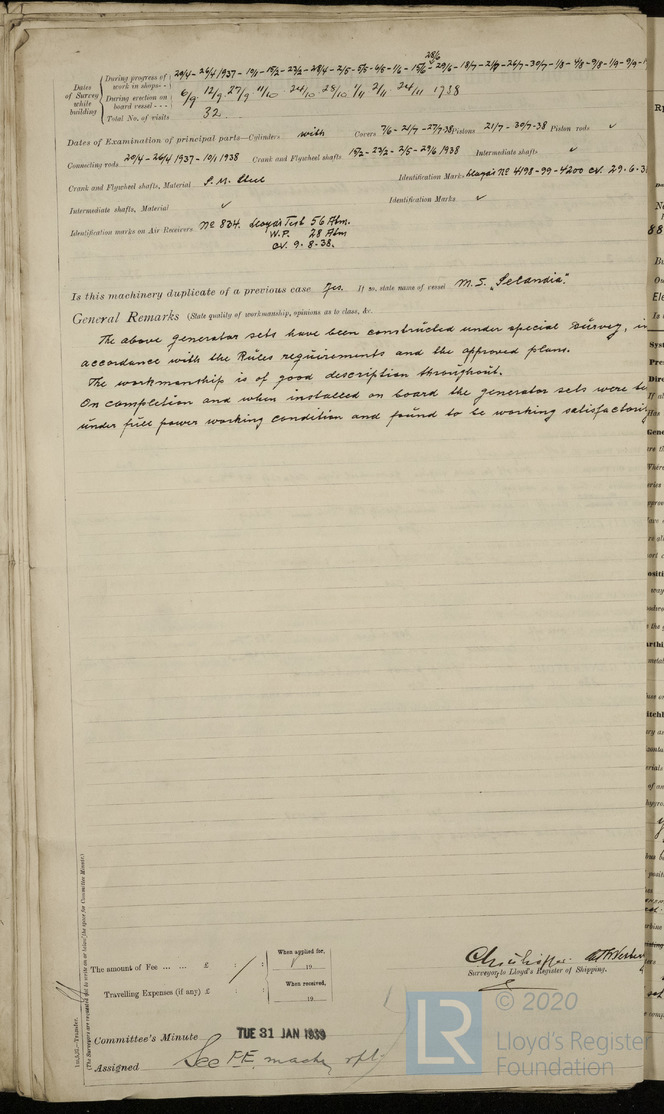 Dates of Survey while building
During progress of work in shops - - 20/4 - 26/4 1937 - 10/1 - 15/2 - 23/2 - 28/4 - 2/5 - 5/5 - 1/6 - 28/6 - 29/6 - 18/7 - 21/7 - 26/7 - 30/7 - 1/8 - 4/8 - 9/8 - 1/9 - 9/9
During erection on board vessel - - - 6/9 12/9 27/9 11/10 24/10 28/10 1/11 2/11 24/11 1938
Total No. of visits 32
Dates of Examination of principal parts—Cylinders with Covers 7/6 - 21/7 - 27/7-38 Pistons 21/7 - 30/7-38 Piston rods ✓
Connecting rods 20/4 - 26/4 1937 - 10/1 1938 Crank and Flywheel shafts 15/2 - 23/2 - 2/5 - 29/6 1938 Intermediate shafts ✓
Crank and Flywheel shafts, Material S. M. Steel Identification Mark Lloyd's No 4198-99-4200 CV. 29.6.3
Intermediate shafts, Material ✓ Identification Marks ✓
Identification marks on Air Receivers No 834. Lloyd's Test 56 Atm.
W.P. 28 Atm
CV. 9.8.38.
Is this machinery duplicate of a previous case Yes. If so, state name of vessel M.S. "Selandia".
General Remarks (State quality of workmanship, opinions as to class, &c.
The above generator sets have been constructed under special survey, in
accordance with the Rules requirements and the approved plans.
The workmanship is of good description throughout.
On completion and when installed on board the generator sets were
under full power working condition and found to be working satisfactorily
The amount of Fee ... ... £ : / :
When applied for, 19
Travelling Expenses (if any) £ : :
When received, 19
Surveyor to Lloyd's Register of Shipping.
Committee's Minute TUE 31 JAN 1939
Assigned See F.E. machy rpt
(The Surveyors are requested not to write on or below the space for Committee Minute.)
© 2020
LR
Lloyd's Register
Foundation